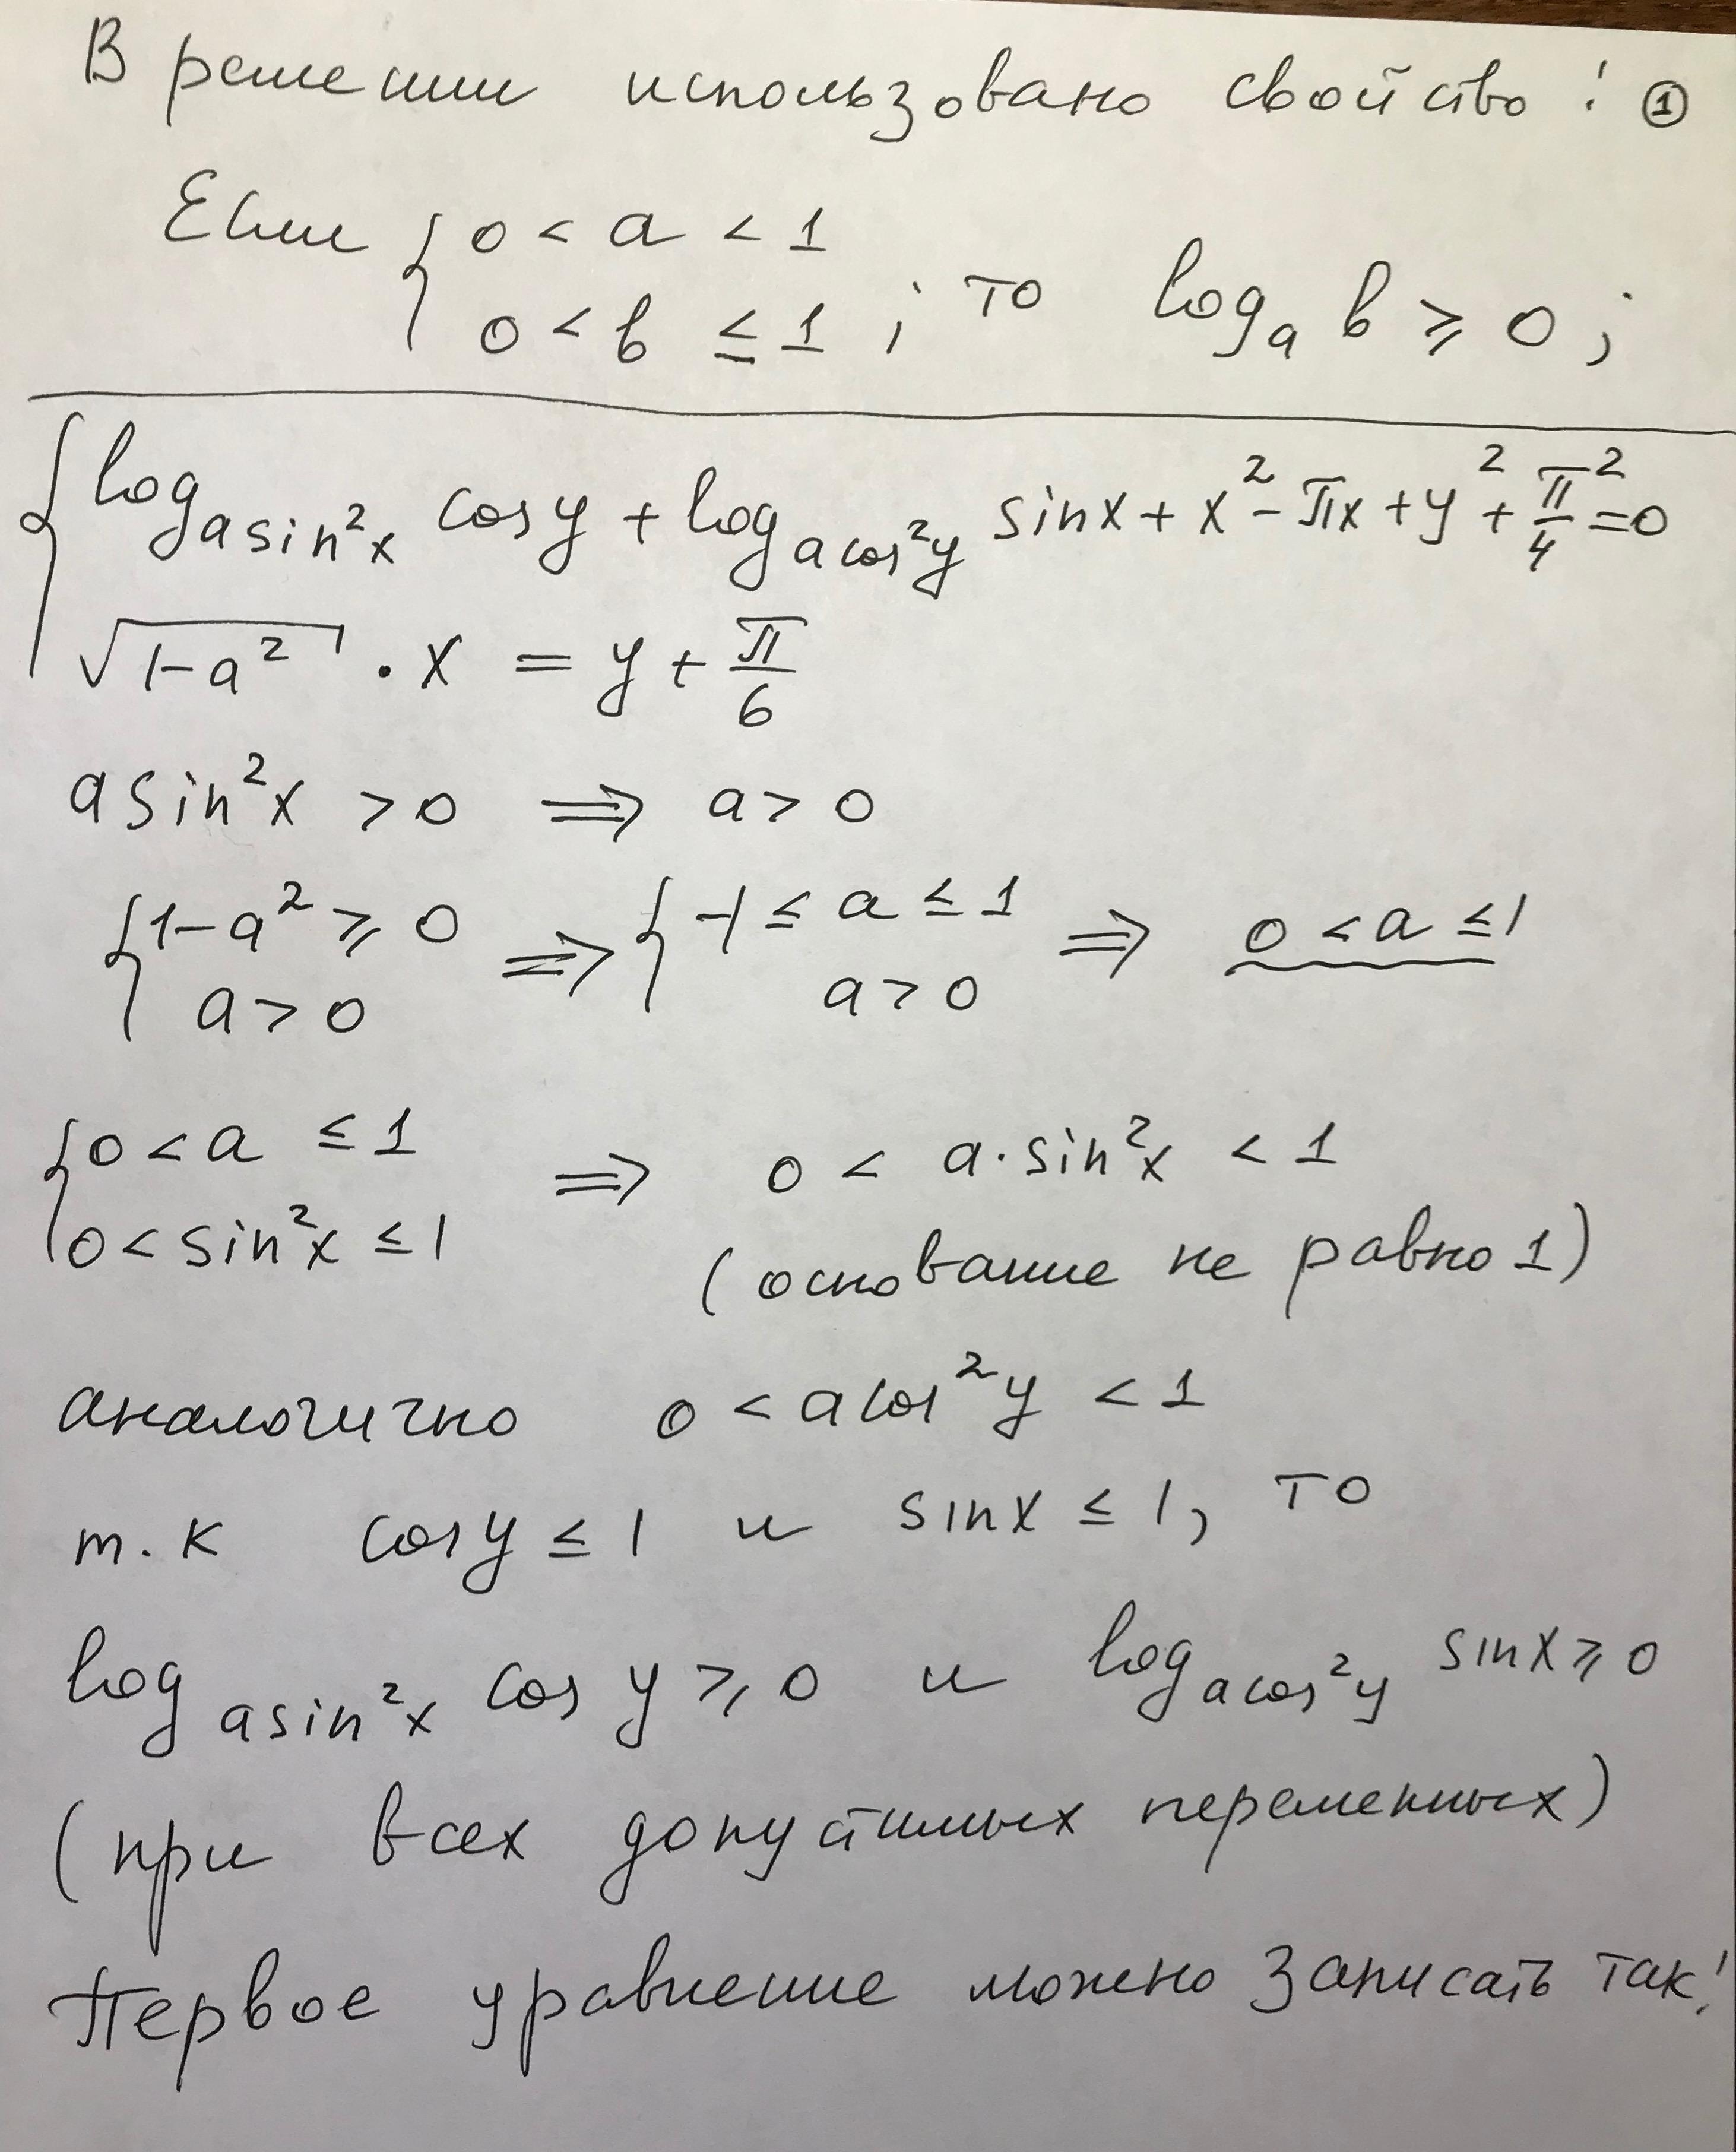 В решении использовано свойство: ①
Если { 0 < a < 1
0 < b ≤ 1 ; то log_a b ≥ 0 ;
{ log_{a sin²x} cos y + log_{a cos²y} sin x + x² - πx + y² + π²/4 = 0
√(1-a²) · x = y + π/6
a sin²x > 0 ⇒ a > 0
{ 1-a² ≥ 0 ⇒ { -1 ≤ a ≤ 1 ⇒ 0 < a ≤ 1
a > 0 a > 0
{ 0 < a ≤ 1 ⇒ 0 < a · sin²x < 1
0 < sin²x ≤ 1 (основание не равно 1)
аналогично 0 < a cos²y < 1
т.к cos y ≤ 1 и sin x ≤ 1, то
log_{a sin²x} cos y ≥ 0 и log_{a cos²y} sin x ≥ 0
(при всех допустимых переменных)
Первое уравнение можно записать так: